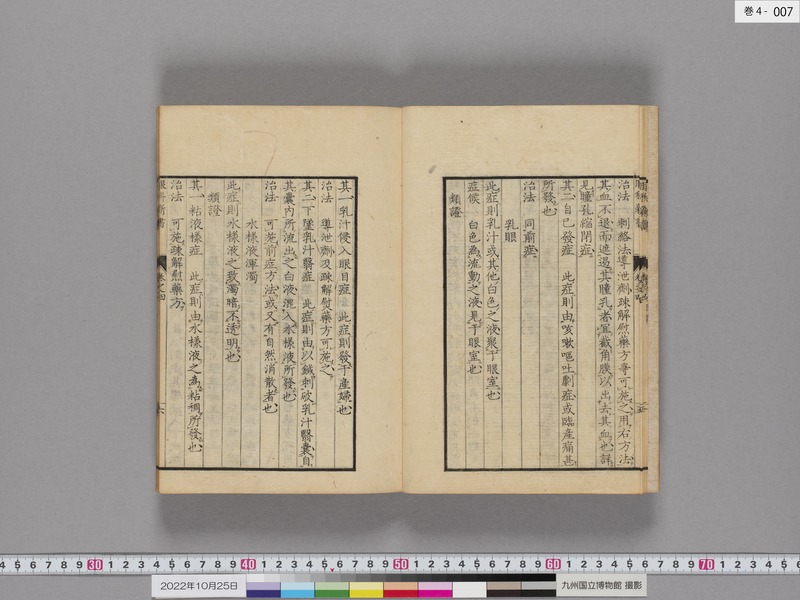 巻4 - 007
治法 刺絡法導泄劑疎解慰藥方等可施之用右方法
其血不退而遮過其瞳孔者宜截角膜以出去其血也詳
見瞳孔縮閉症
其二自已發症 此症則由咳嗽嘔吐劇症或臨產痛甚
所發也
治法 同前症
乳眼
此症則乳汁或其他白色之液聚于眼室也
症候 白色為流動之液見于眼室也
類證
其一乳汁侵入眼目症 此症則發于產婦也
治法 導泄劑及疎解熨藥方可施之
其二下墜乳汁翳症 此症則由以鍼刺破乳汁翳囊自
其囊內所流出之白液混入水樣液所發也
治法 可施前症方法或又有自然消散者也
水樣液渾濁
此症則水樣液之致濁暗不透明也
類證
其一粘液樣症 此症則由水樣液之為粘稠所發也
治法 可施疎解慰藥方
眼科新書
卷之四
六
30 40 50 60 70
2022年10月25日
九州国立博物館 撮影